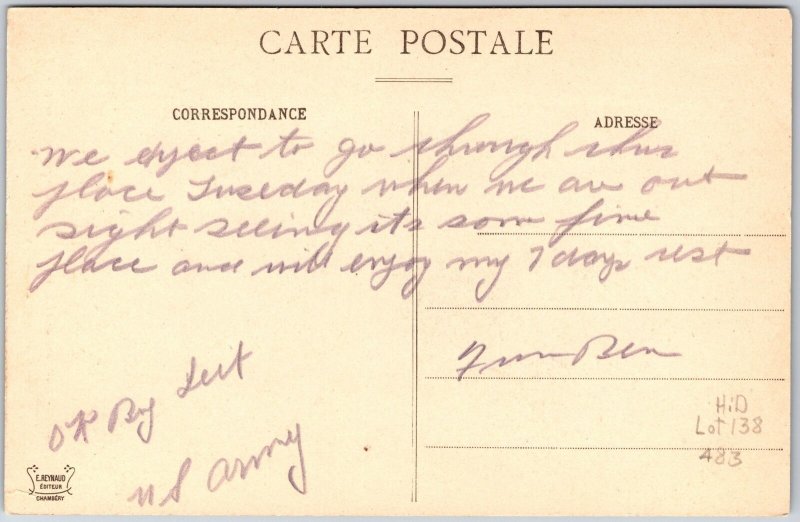 CARTE POSTALE
CORRESPONDANCE
ADRESSE
We expect to go through this
place Tuseday when we are out
sight seeing its som fine
place and will enjoy my 7 days rest
From Ben
OK By
US Army
HiD
Lot 138
483
E. REYNAUD
ÉDITEUR
CHAMBÉRY